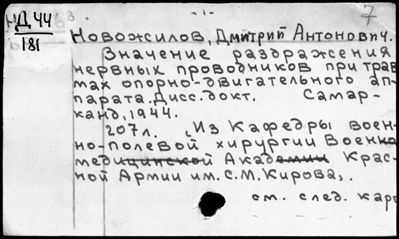 Д 44
181
- 1 -
7
Новожилов, Дмитрий Антонович.
Значение раздражения
нервных проводников при трав
мах опорно-двигательного ап-
парата. Дисс. докт. Самар-
канд, 1944.
207л. (Из Кафедры воен-
но-полевой хирургии Военно
медицинской Академии Крас-
ной Армии им. С.М. Кирова).
см. след. карт